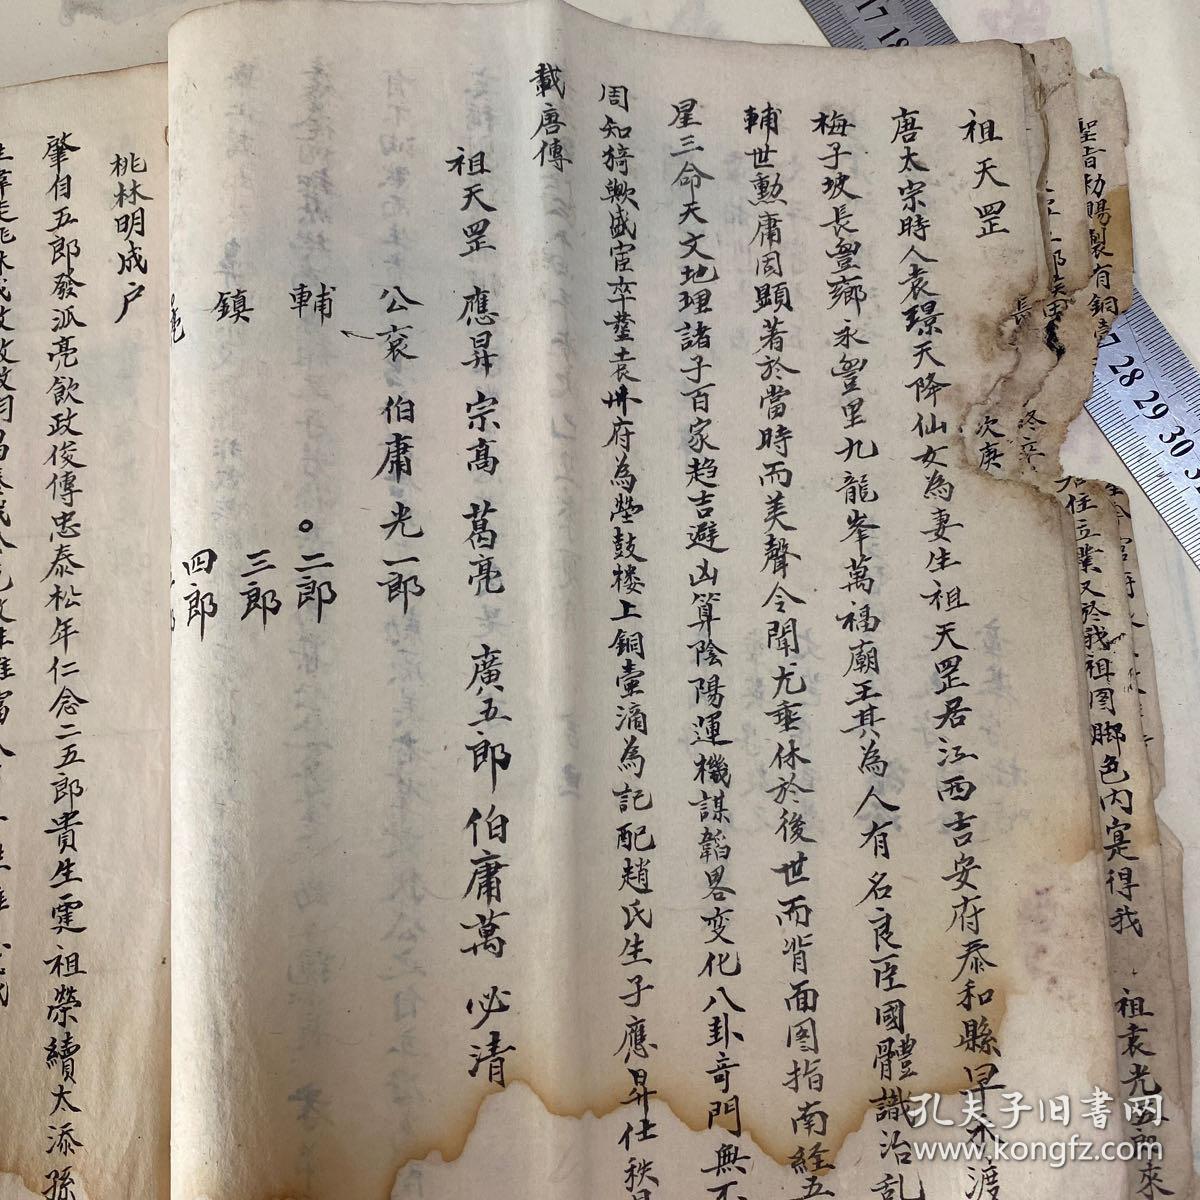 祖天罡
唐太宗時人袁璟天降仙女為妻生祖天罡居江西吉安府泰和縣早禾渡
梅子坡長豊鄉永豊里九龍峯萬福廟王其為人有名良臣國體識治乱
輔世勳庸因顕著於當時而美聲令聞尤垂休於後世而背面图指南経五
星三命天文地理諸子百家趋吉避凶算陰陽運機謀韜畧变化八卦奇門無不
周知猗歟盛宦卒塟袁州府為塋鼓楼上銅壷滴為記配趙氏生子應昇仕秩
載唐傳
祖天罡 應昇 宗高 葛亮 廣五郎 伯庸萬 必清
公衮 伯庸 光一郎
輔 二郎
鎮 三郎
四郎
桃林明成户
肇自五郎發派亮欽政俊傳忠泰松年仁念二五郎貴生霆祖榮續太添孫
聖旨勅賜製有銅壺
長
次庚
住立業又於我祖图脚色内寔得我
祖袁光四郎來
孔夫子旧书网
www.kongfz.com
17 18
27 28 29 30